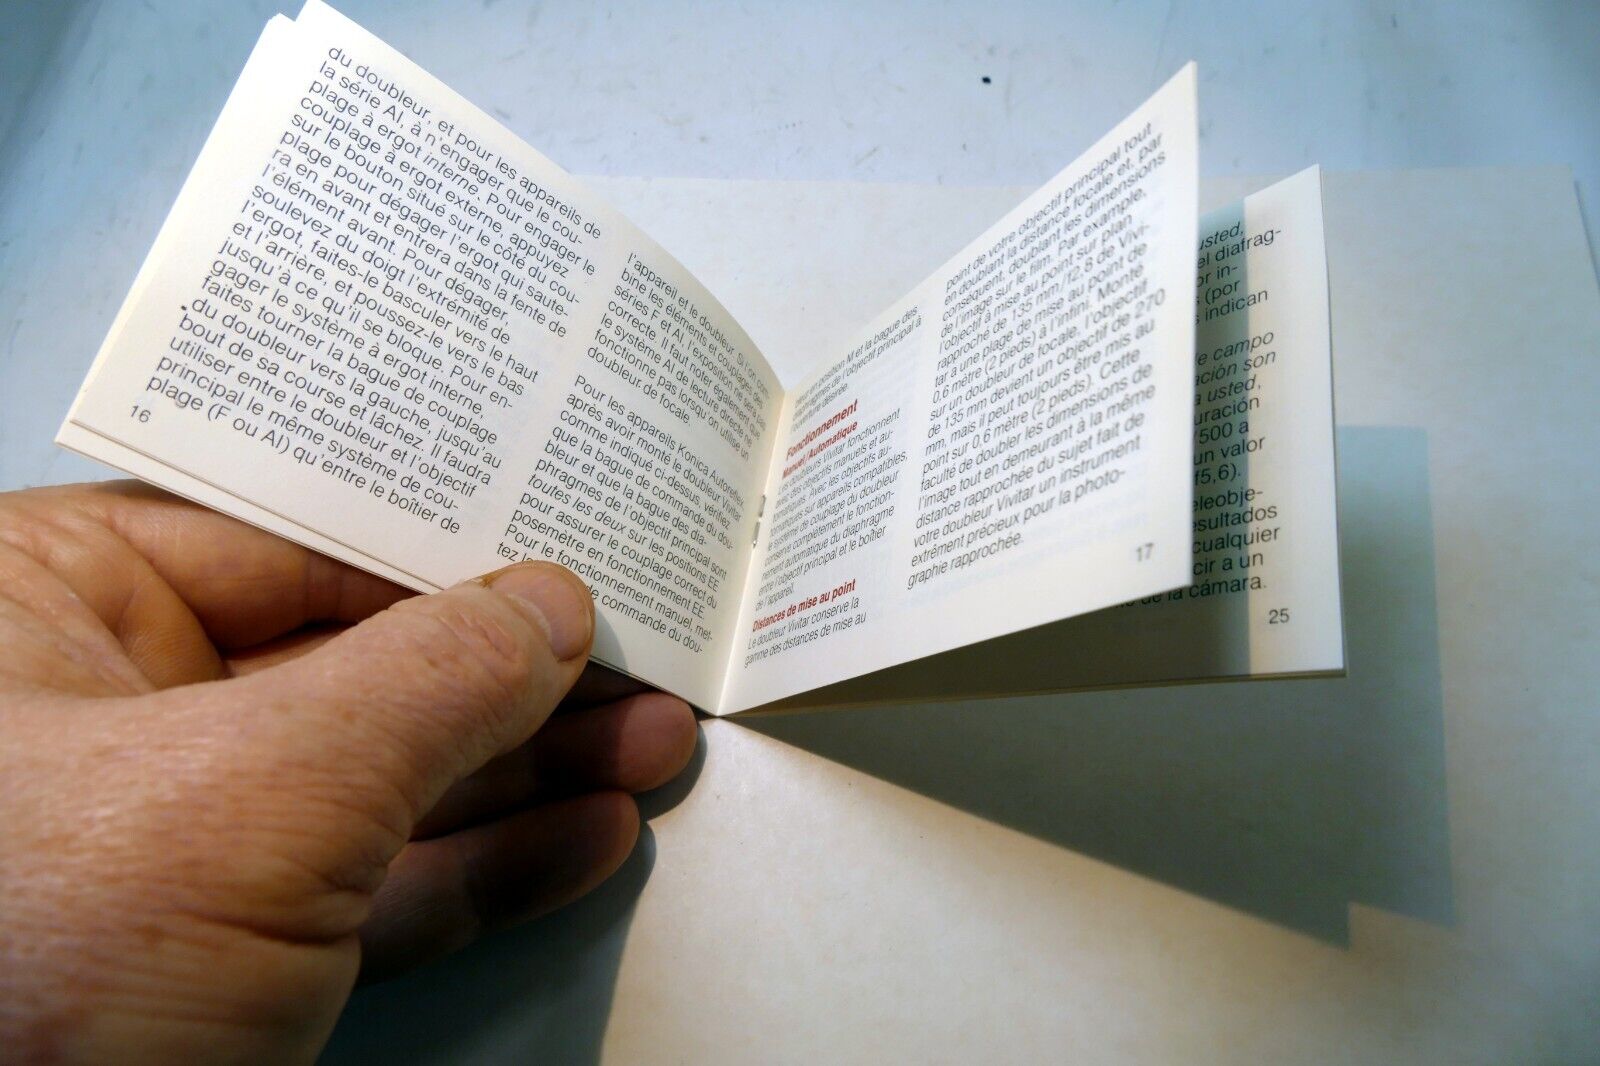 du doubleur, et pour les appareils de
la série AI, à n'engager que le cou-
plage à ergot interne. Pour engager le
couplage à ergot externe, appuyez
sur le bouton situé sur le côté du cou-
plage pour dégager l'ergot qui saute-
ra en avant et entrera dans la fente de
l'élément avant. Pour dégager,
soulevez du doigt l'extrémité de
l'ergot, faites-le basculer vers le haut
et l'arrière, et poussez-le vers le bas
jusqu'à ce qu'il se bloque. Pour en-
gager le système à ergot interne,
faites tourner la bague de couplage
du doubleur vers la gauche, jusqu'au
bout de sa course et lâchez. Il faudra
utiliser entre le doubleur et l'objectif
principal le même système de cou-
plage (F ou AI) qu'entre le boîtier de
16
l'appareil et le doubleur. Si l'on com-
bine les éléments et couplages des
séries F et AI, l'exposition ne sera pas
correcte. Il faut noter également que
le système AI de lecture directe ne
fonctionne pas lorsqu'on utilise un
doubleur de focale.
Pour les appareils Konica Autoreflex
après avoir monté le doubleur Vivitar
comme indiqué ci-dessus, vérifiez
que la bague de commande du dou-
bleur et que la bague des dia-
phragmes de l'objectif principal sont
toutes les deux sur les positions EE
pour assurer le couplage correct du
posemètre en fonctionnement EE.
Pour le fonctionnement manuel, met-
tez de commande du dou-
bleur en position M et la bague des
diaphragmes de l'objectif principal à
l'ouverture désirée.
Fonctionnement
Manuel/Automatique
Les doubleurs Vivitar fonctionnent
avec des objectifs manuels et au-
tomatiques. Avec les objectifs au-
tomatiques sur appareils compatibles,
le système de couplage du doubleur
conserve complètement le fonction-
nement automatique du diaphragme
entre l'objectif principal et le boîtier
de l'appareil.
Distances de mise au point
Le doubleur Vivitar conserve la
gamme des distances de mise au
point de votre objectif principal tout
en doublant la distance focale et, par
conséquent, doublant les dimensions
de l'image sur le film. Par exemple,
l'objectif à mise au point sur plan
rapproché de 135 mm/f2,8 de Vivi-
tar a une plage de mise au point de
0,6 mètre (2 pieds) à l'infini. Monté
sur un doubleur de focale, l'objectif
de 135 mm devient un objectif de 270
mm, mais il peut toujours être mis au
point sur 0,6 mètre (2 pieds). Cette
faculté de doubler les dimensions de
l'image tout en demeurant à la même
distance rapprochée du sujet fait de
votre doubleur Vivitar un instrument
extrément précieux pour la photo-
graphie rapprochée.
17
usted,
el diafrag-
or in-
s (por
indican
e campo
ación son
usted,
uración
/500 a
un valor
f5,6).
eleobje-
esultados
cualquier
cir a un
de la cámara.
25